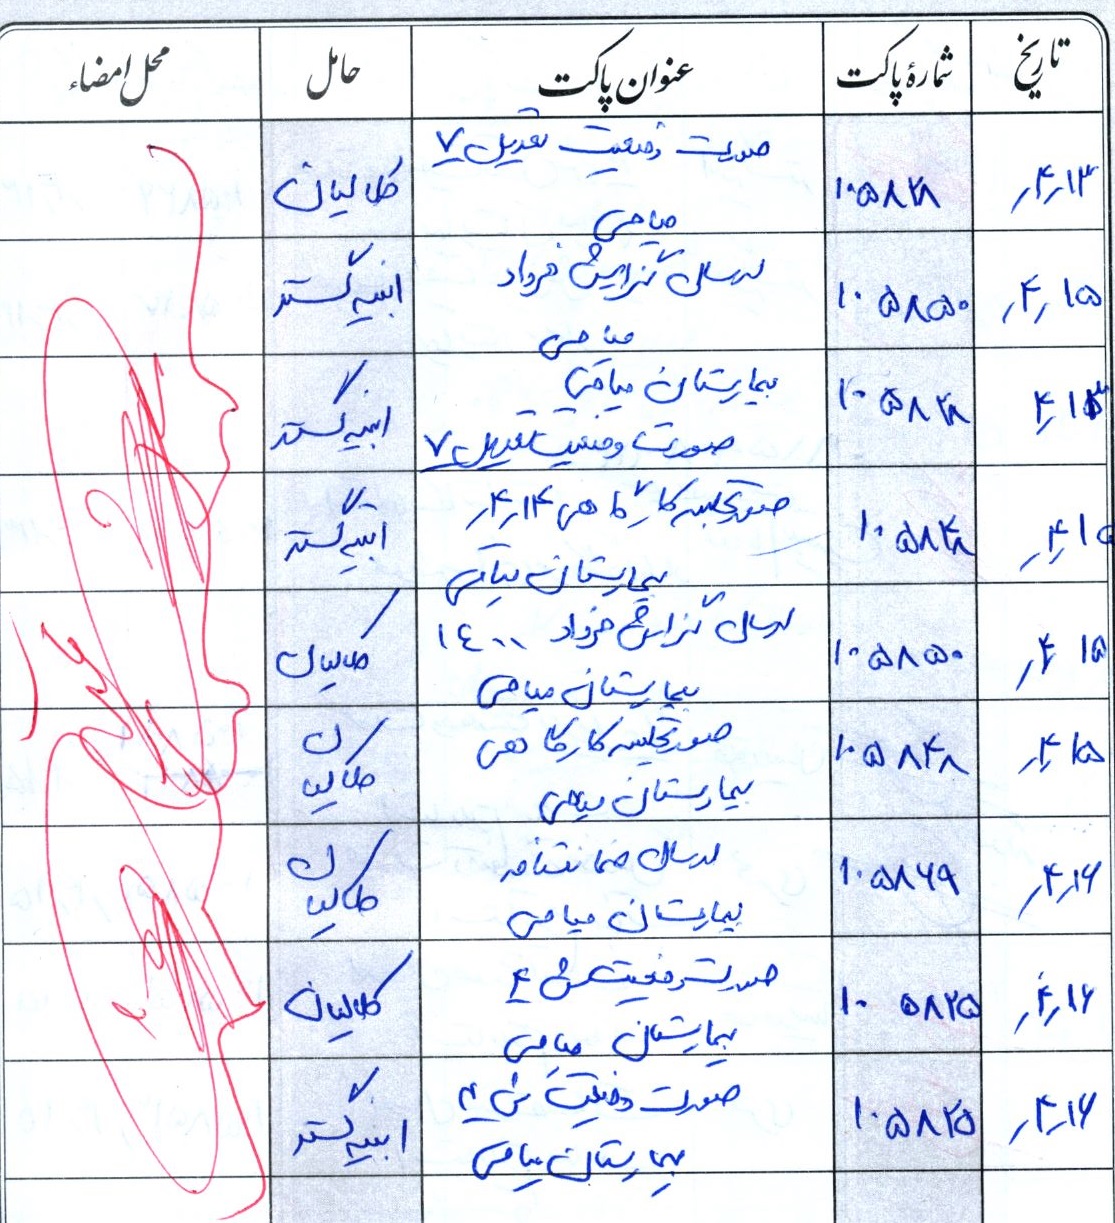 تاریخ شمارۀ پاکت عنوان پاکت حامل محل امضاء
صورت وضعیت تعدیل ۷
۴٫۱۳ ۱۰۵۸۲۸ طالبیان
میامی
ارسال گزارش خرداد
۴٫۱۵ ۱۰۵۸۵۰ ابنیه گستر
میامی
بیمارستان میامی
۴٫۱۳ ۱۰۵۸۲۸ ابنیه گستر
صورت وضعیت تعدیل ۷
صورتجلسه کارگاهی ۴٫۱۴
۴٫۱۵ ۱۰۵۸۴۸ ابنیه گستر
بیمارستان میامی
ارسال گزارش خرداد ۱۴۰۰
۴٫۱۵ ۱۰۵۸۵۰ طالبیان
بیمارستان میامی
صورتجلسه کارگاهی
۴٫۱۵ ۱۰۵۸۴۸ طالبیان
بیمارستان میامی
ارسال ضمانتنامه
۴٫۱۶ ۱۰۵۸۶۹ طالبیان
بیمارستان میامی
صورت وضعیت ش ۴
۴٫۱۶ ۱۰۵۸۲۵ طالبیان
بیمارستان میامی
صورت وضعیت ش ۴
۴٫۱۶ ۱۰۵۸۲۵ ابنیه گستر
بیمارستان میامی